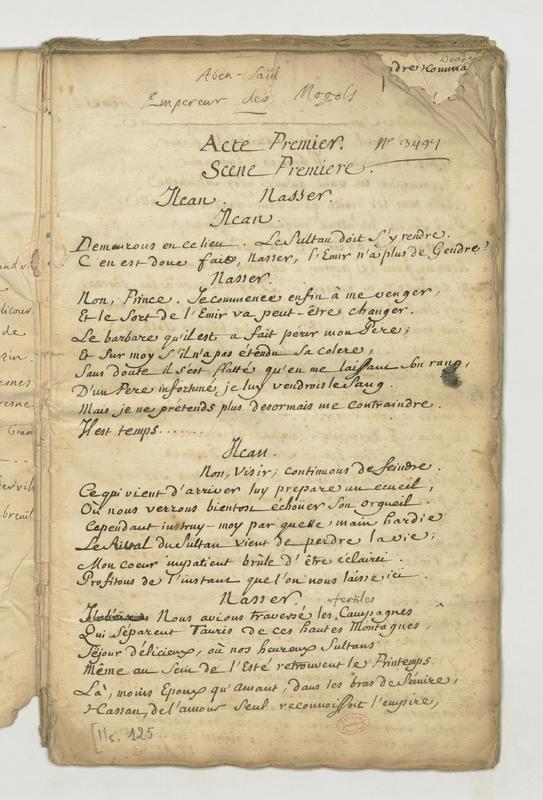 Aben-Saïd
Empereur des Mogols
Acte Premier. N° 3497
Scene Premiere.
Ilcan. Nasser.
Ilcan.
Demeurons en ce lieu. Le Sultan doit s'y rendre.
C'en est donc fait, Nasser, l'Emir n'a plus de Gendre?
Nasser.
Non, Prince. Je commence enfin à me venger,
Et le Sort de l'Emir va peut-être changer.
Le barbare qu'il est a fait perir mon Pere;
Et Sur moy s'il n'a pas étendu Sa Colere;
Sans doute il s'est flatté qu'en me laissant Son rang,
D'un Pere infortuné je luy vendrois le Sang.
Mais je ne prétends plus desormais me contraindre.
Il est temps......
Ilcan.
Non, Visir; continuons de feindre.
Ce qui vient d'arriver luy prepare un ecueil,
Où nous verrons bientost echouer Son orgueil.
Cependant instruy-moy par quelle main hardie
Le Rival du Sultan vient de perdre la vie;
Mon coeur impatient brûle d'être éclairci.
Profitons de l'instant que l'on nous laisse ici.
Nasser.
fertiles
Nous avions traversé les Campagnes
Qui Séparent Tauris de ces hautes Montagnes,
Séjour délicieux, où nos heureux Sultans
Même au Sein de l'Esté retrouvent le Printemps.
Là, moins Epoux qu'Amant, dans les bras de Sémire,
Hassan, de l'amour Seul reconnoissoit l'empire,
125